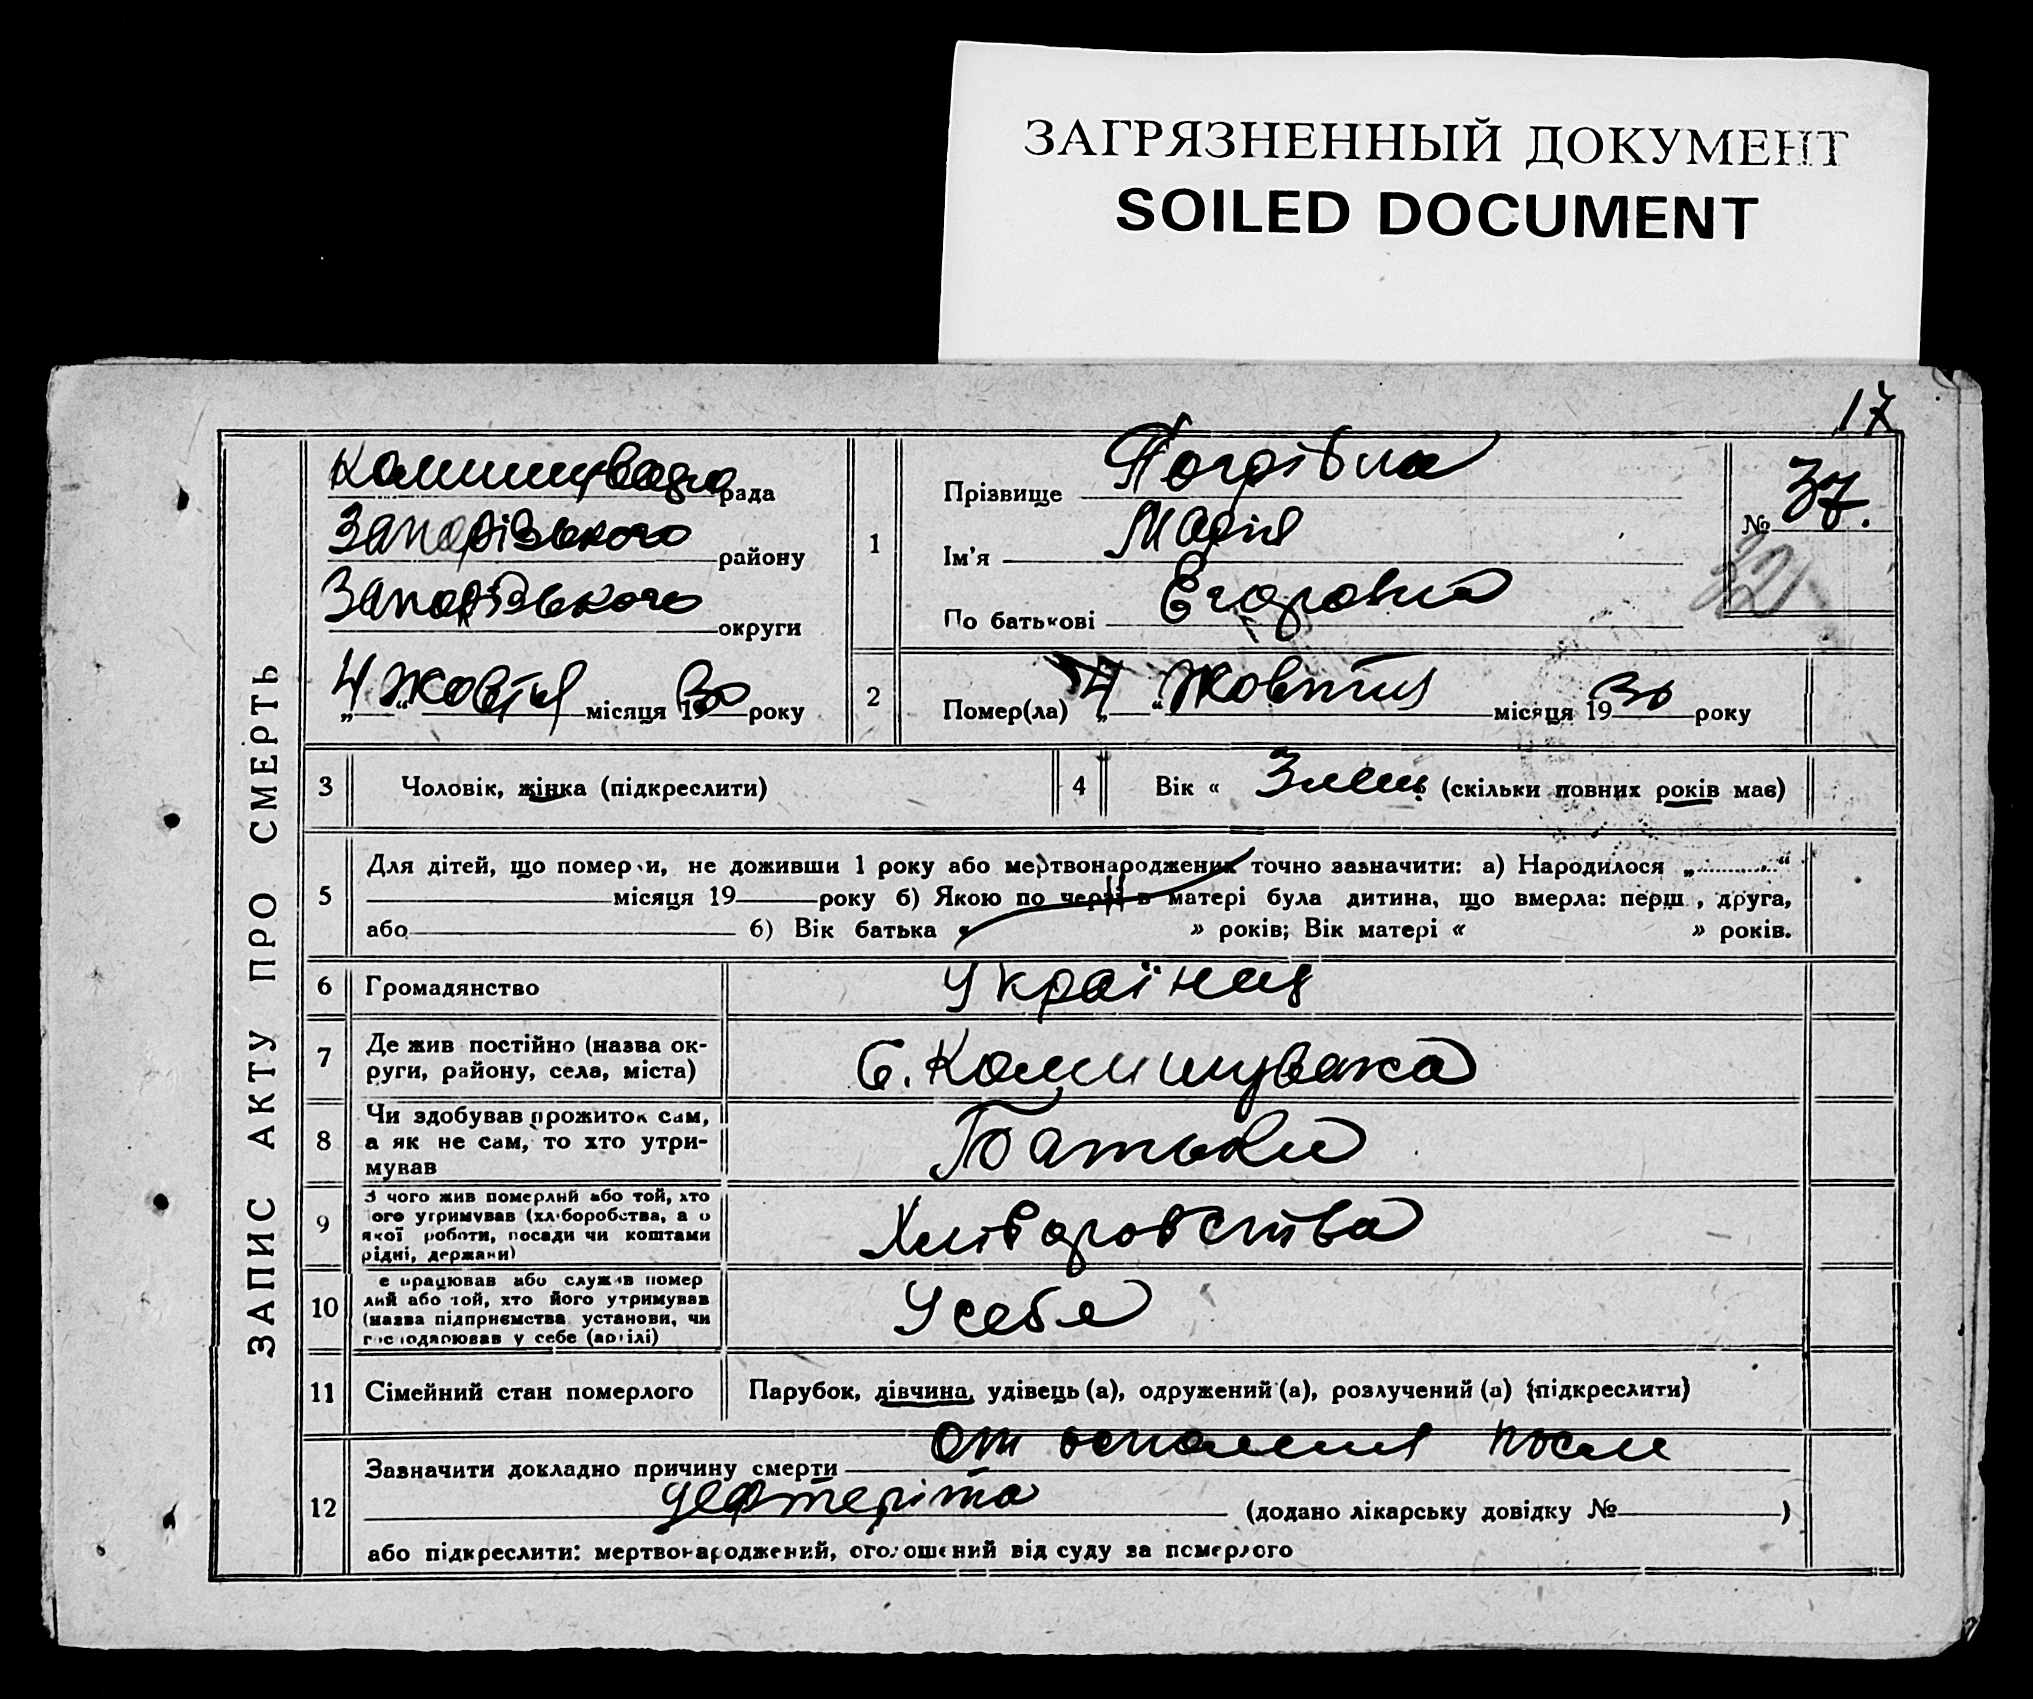 ЗАГРЯЗНЕННЫЙ ДОКУМЕНТ
SOILED DOCUMENT
17
ЗАПИС АКТУ ПРО СМЕРТЬ
рада
Запорізького району
Запорізького округи
„4“ Жовтня місяця 1930 року
1
Прізвище Погрібна
Ім'я Марія
По батькові Егоровна
№ 37.
32
2
Помер(ла) „4“ Жовтня місяця 1930 року
3 Чоловік, жінка (підкреслити)
4 Вік « (скільки повних років має)
5 Для дітей, що померли, не доживши 1 року або мертвонароджених точно зазначити: а) Народилося „ “
місяця 19 року б) Якою по черзі в матері була дитина, що вмерла: перш , друга,
або б) Вік батька « » років; Вік матері « » років.
6 Громадянство Українця
7 Де жив постійно (назва ок-
руги, району, села, міста) с. Комишуваха
8 Чи здобував прожиток сам,
а як не сам, то хто утри-
мував Батьки
9 З чого жив померлий або той, хто
ого утримував (хліборобства, а о
якої роботи, посади чи коштами
рідні, держави) Хліборобства
10 е працював або служив помер
лий або той, хто його утримував
(назва підприємства установи, чи
господарював у себе (артілі) У себе
11 Сімейний стан померлого Парубок, дівчина, удівець (а), одружений (а), розлучений (а) (підкреслити)
12 Зазначити докладно причину смерти От после
(додано лікарську довідку № )
або підкреслити: мертвонароджений, оголошений від суду за померлого